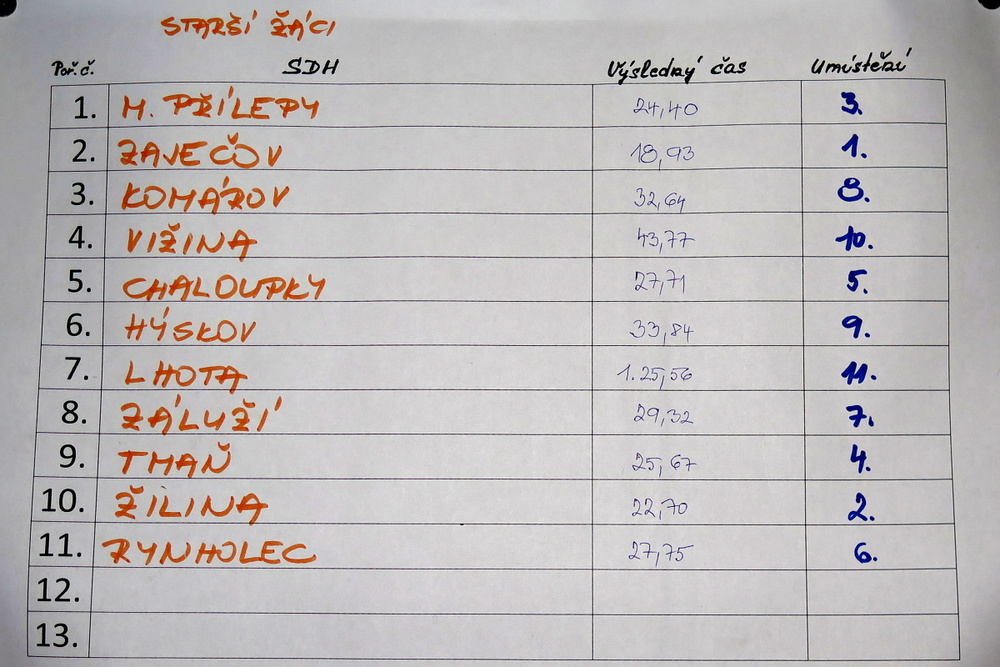 STARŠÍ ŽÁCI
Poř.č. SDH Výsledný čas Umístění
1. H. PŘÍLEPY 24,40 3.
2. ZAJEČOV 18,93 1.
3. KOMÁROV 32,64 8.
4. VIŽINA 43,77 10.
5. CHALOUPKY 27,71 5.
6. HÝSKOV 33,84 9.
7. LHOTA 1.25,56 11.
8. ZÁLUŽÍ 29,32 7.
9. TMAŇ 25,67 4.
10. ŽILINA 22,70 2.
11. RYNHOLEC 27,75 6.
12.
13.